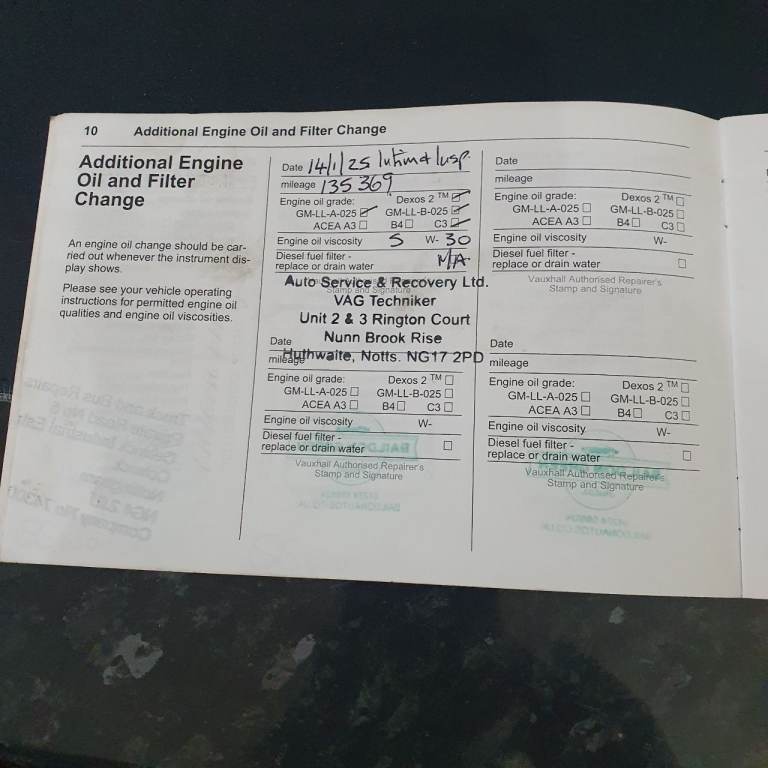 10 Additional Engine Oil and Filter Change
Additional Engine
Oil and Filter
Change
An engine oil change should be car-
ried out whenever the instrument dis-
play shows.
Please see your vehicle operating
instructions for permitted engine oil
qualities and engine oil viscosities.
Date 14/1/25 Interim + Insp.
mileage 135369
Engine oil grade: Dexos 2 ™ ☑
GM-LL-A-025 ☑ GM-LL-B-025 ☑
ACEA A3 ☐ B4 ☐ C3 ☑
Engine oil viscosity 5 W- 30
Diesel fuel filter -
replace or drain water N/A
Vauxhall Authorised Repairer's
Stamp and Signature
Auto Service & Recovery Ltd.
VAG Techniker
Unit 2 & 3 Rington Court
Nunn Brook Rise
Huthwaite, Notts. NG17 2PD
Date
mileage
Engine oil grade: Dexos 2 ™ ☐
GM-LL-A-025 ☐ GM-LL-B-025 ☐
ACEA A3 ☐ B4 ☐ C3 ☐
Engine oil viscosity W-
Diesel fuel filter -
replace or drain water ☐
Vauxhall Authorised Repairer's
Stamp and Signature
Date
mileage
Engine oil grade: Dexos 2 ™ ☐
GM-LL-A-025 ☐ GM-LL-B-025 ☐
ACEA A3 ☐ B4 ☐ C3 ☐
Engine oil viscosity W-
Diesel fuel filter -
replace or drain water ☐
Vauxhall Authorised Repairer's
Stamp and Signature
Date
mileage
Engine oil grade: Dexos 2 ™ ☐
GM-LL-A-025 ☐ GM-LL-B-025 ☐
ACEA A3 ☐ B4 ☐ C3 ☐
Engine oil viscosity W-
Diesel fuel filter -
replace or drain water ☐
Vauxhall Authorised Repairer's
Stamp and Signature